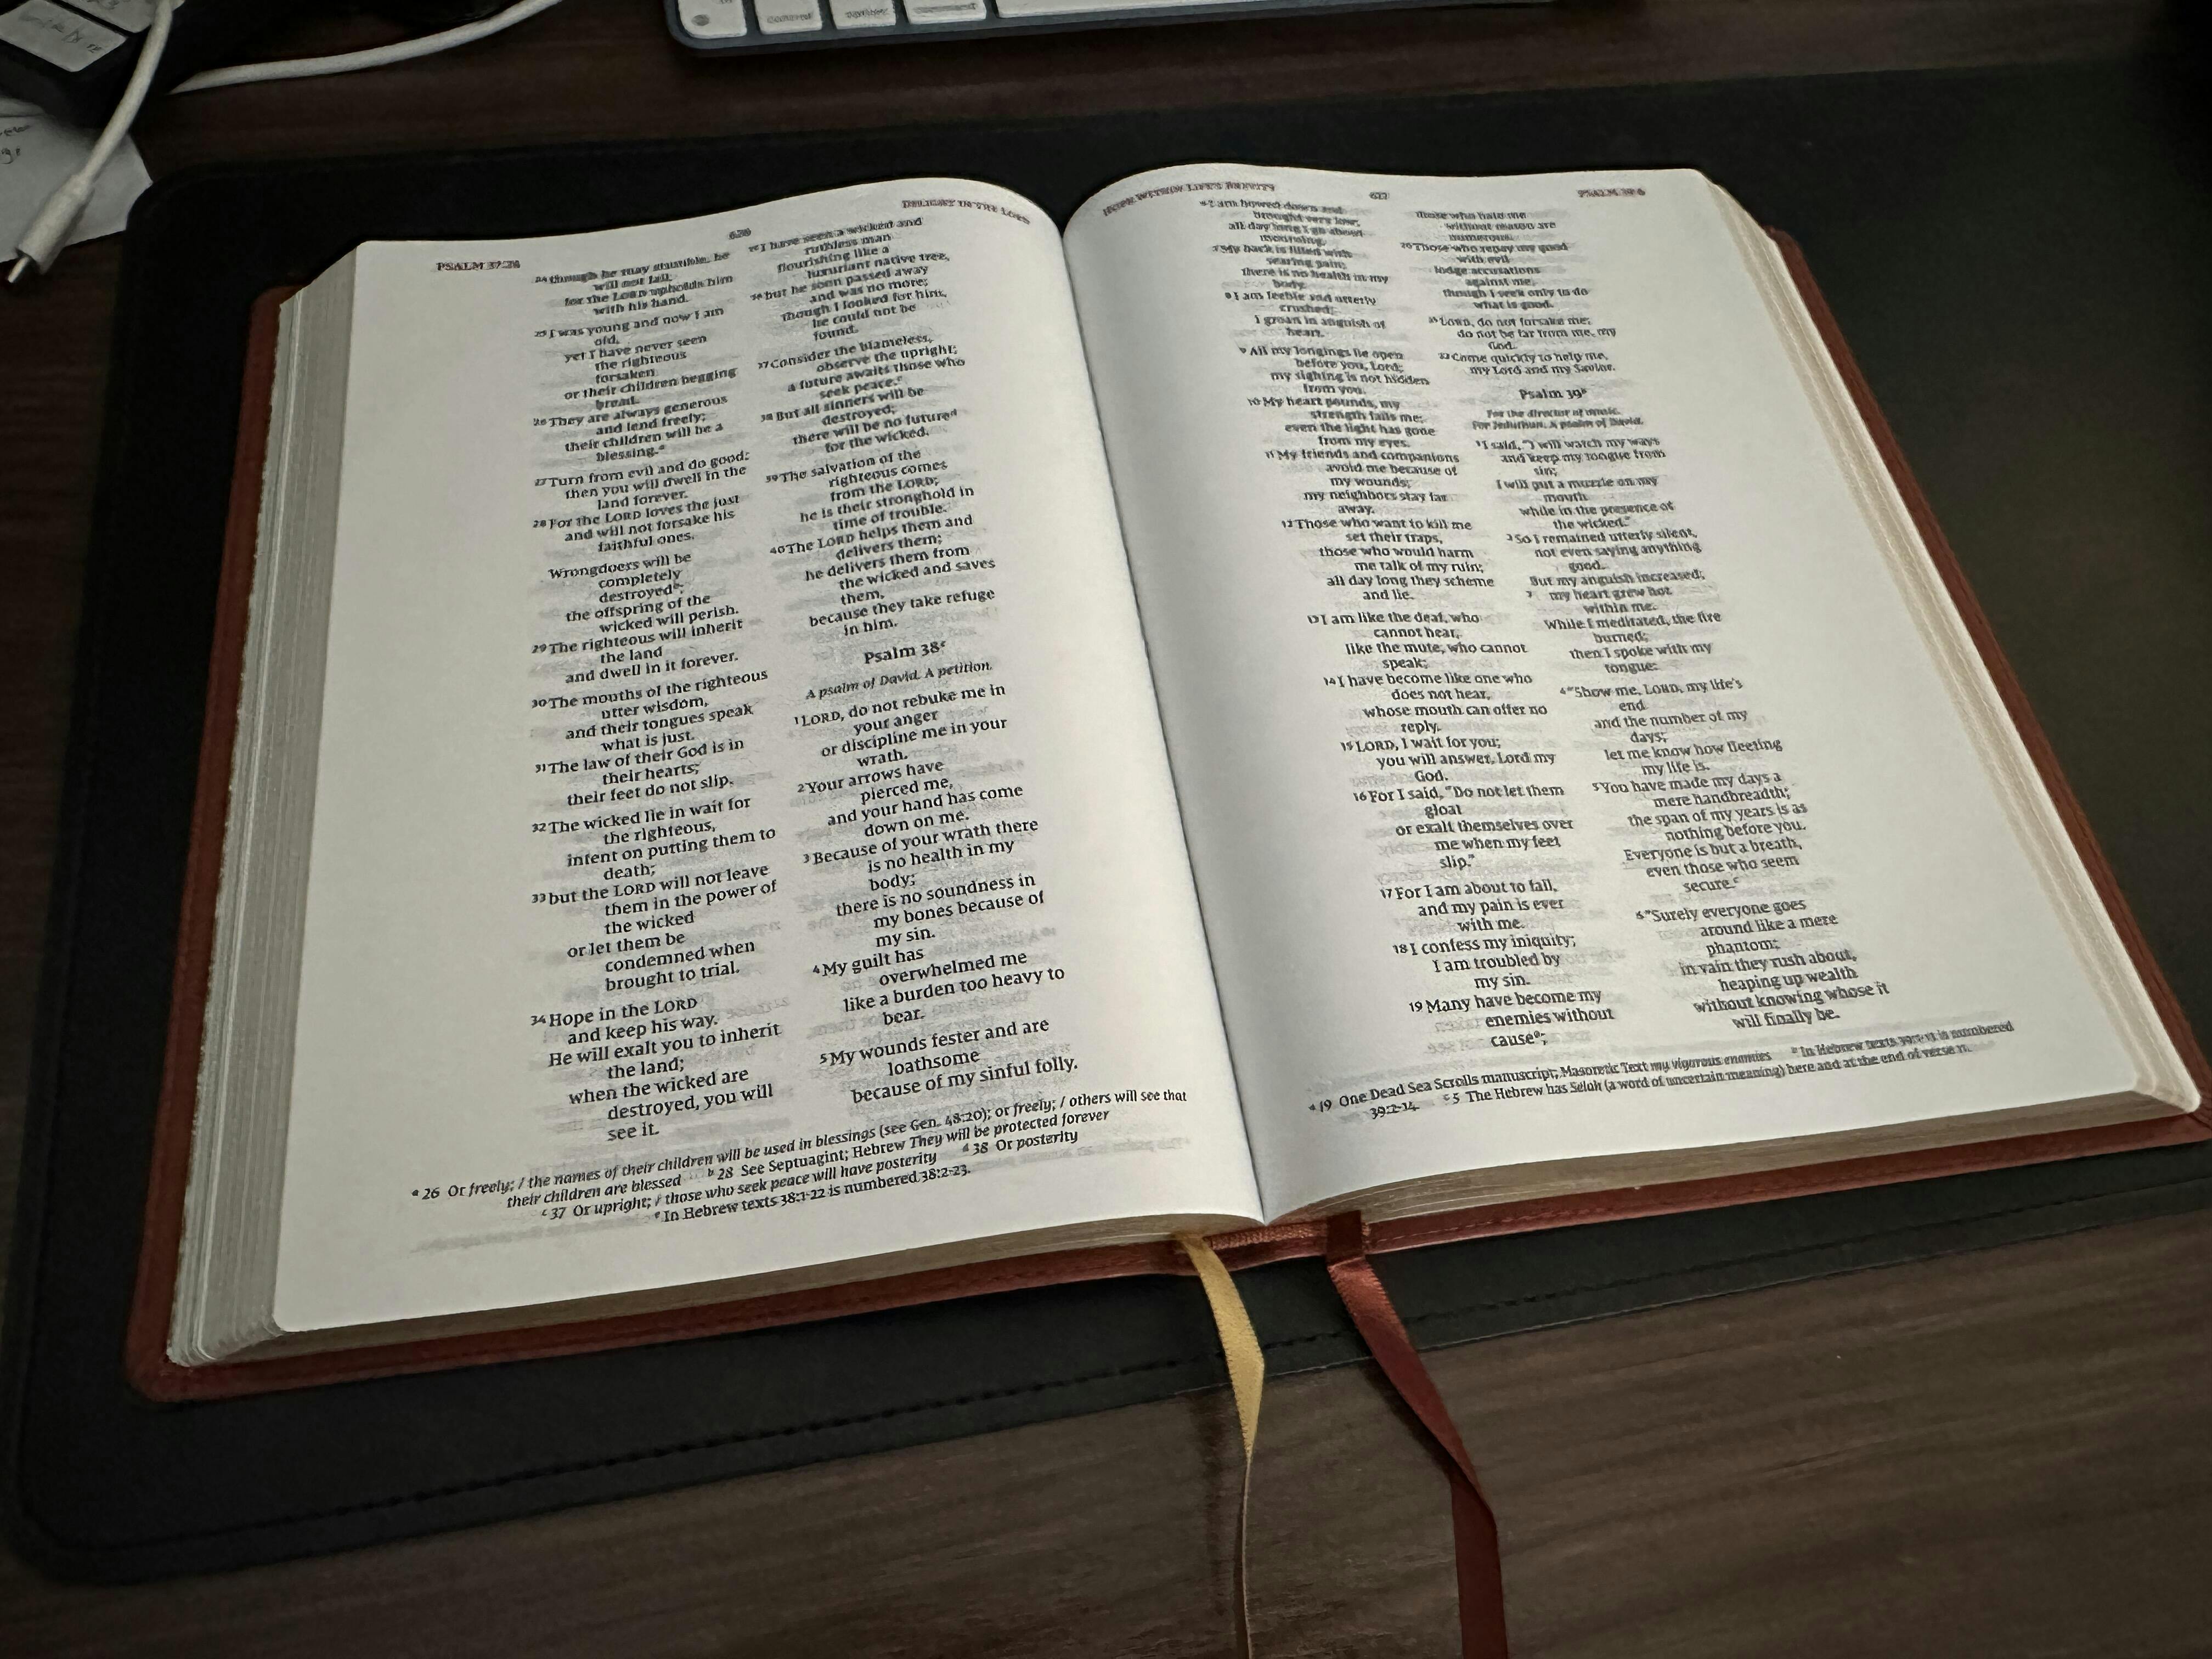 PSALM 37:24
626
DELIGHT IN THE LORD
24 though he may stumble, he
will not fall,
for the LORD upholds him
with his hand.
25 I was young and now I am
old,
yet I have never seen
the righteous
forsaken
or their children begging
bread.
26 They are always generous
and lend freely;
their children will be a
blessing.a
27 Turn from evil and do good;
then you will dwell in the
land forever.
28 For the LORD loves the just
and will not forsake his
faithful ones.
Wrongdoers will be
completely
destroyedb;
the offspring of the
wicked will perish.
29 The righteous will inherit
the land
and dwell in it forever.
30 The mouths of the righteous
utter wisdom,
and their tongues speak
what is just.
31 The law of their God is in
their hearts;
their feet do not slip.
32 The wicked lie in wait for
the righteous,
intent on putting them to
death;
33 but the LORD will not leave
them in the power of
the wicked
or let them be
condemned when
brought to trial.
34 Hope in the LORD
and keep his way.
He will exalt you to inherit
the land;
when the wicked are
destroyed, you will
see it.
35 I have seen a wicked and
ruthless man
flourishing like a
luxuriant native tree,
36 but he soon passed away
and was no more;
though I looked for him,
he could not be
found.
37 Consider the blameless,
observe the upright;
a future awaits those who
seek peace.c
38 But all sinners will be
destroyed;
there will be no futured
for the wicked.
39 The salvation of the
righteous comes
from the LORD;
he is their stronghold in
time of trouble.
40 The LORD helps them and
delivers them;
he delivers them from
the wicked and saves
them,
because they take refuge
in him.
Psalm 38e
A psalm of David. A petition.
1 LORD, do not rebuke me in
your anger
or discipline me in your
wrath.
2 Your arrows have
pierced me,
and your hand has come
down on me.
3 Because of your wrath there
is no health in my
body;
there is no soundness in
my bones because of
my sin.
4 My guilt has
overwhelmed me
like a burden too heavy to
bear.
5 My wounds fester and are
loathsome
because of my sinful folly.
a 26 Or freely; / the names of their children will be used in blessings (see Gen. 48:20); or freely; / others will see that
their children are blessed b 28 See Septuagint; Hebrew They will be protected forever
c 37 Or upright; / those who seek peace will have posterity d 38 Or posterity
e In Hebrew texts 38:1-22 is numbered 38:2-23.
HOPE WITHIN LIFE'S BREVITY
627
PSALM 39:6
6 I am bowed down and
brought very low;
all day long I go about
mourning.
7 My back is filled with
searing pain;
there is no health in my
body.
8 I am feeble and utterly
crushed;
I groan in anguish of
heart.
9 All my longings lie open
before you, Lord;
my sighing is not hidden
from you.
10 My heart pounds, my
strength fails me;
even the light has gone
from my eyes.
11 My friends and companions
avoid me because of
my wounds;
my neighbors stay far
away.
12 Those who want to kill me
set their traps,
those who would harm
me talk of my ruin;
all day long they scheme
and lie.
13 I am like the deaf, who
cannot hear,
like the mute, who cannot
speak;
14 I have become like one who
does not hear,
whose mouth can offer no
reply.
15 LORD, I wait for you;
you will answer, Lord my
God.
16 For I said, "Do not let them
gloat
or exalt themselves over
me when my feet
slip."
17 For I am about to fall,
and my pain is ever
with me.
18 I confess my iniquity;
I am troubled by
my sin.
19 Many have become my
enemies without
causea;
those who hate me
without reason are
numerous.
20 Those who repay my good
with evil
lodge accusations
against me,
though I seek only to do
what is good.
21 LORD, do not forsake me;
do not be far from me, my
God.
22 Come quickly to help me,
my Lord and my Savior.
Psalm 39b
For the director of music.
For Jeduthun. A psalm of David.
1 I said, "I will watch my ways
and keep my tongue from
sin;
I will put a muzzle on my
mouth
while in the presence of
the wicked."
2 So I remained utterly silent,
not even saying anything
good.
But my anguish increased;
3 my heart grew hot
within me.
While I meditated, the fire
burned;
then I spoke with my
tongue:
4 "Show me, LORD, my life's
end
and the number of my
days;
let me know how fleeting
my life is.
5 You have made my days a
mere handbreadth;
the span of my years is as
nothing before you.
Everyone is but a breath,
even those who seem
secure.c
6 "Surely everyone goes
around like a mere
phantom;
in vain they rush about,
heaping up wealth
without knowing whose it
will finally be.
a 19 One Dead Sea Scrolls manuscript; Masoretic Text my vigorous enemies b In Hebrew texts 39:1-13 is numbered
39:2-14. c 5 The Hebrew has Selah (a word of uncertain meaning) here and at the end of verse 11.
control
option
command